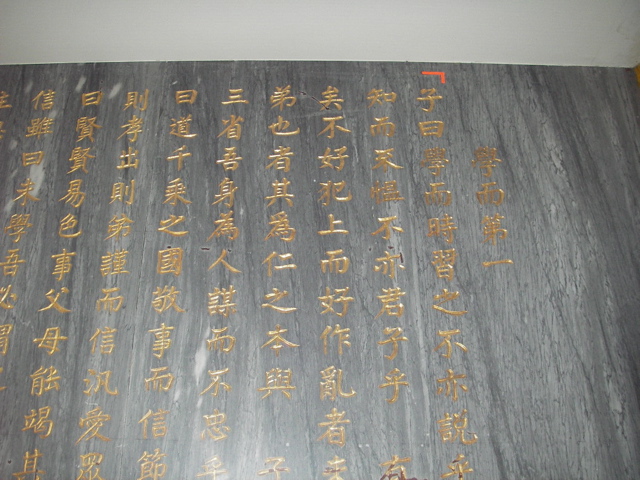 學而第一
子曰學而時習之不亦説乎
知而不慍不亦君子乎 有
矣不好犯上而好作亂者未
弟也者其為仁之本與 子
三省吾身為人謀而不忠乎
曰道千乘之國敬事而信節
則孝出則弟謹而信汎愛眾
曰賢賢易色事父母能竭其
信雖曰未學吾必謂